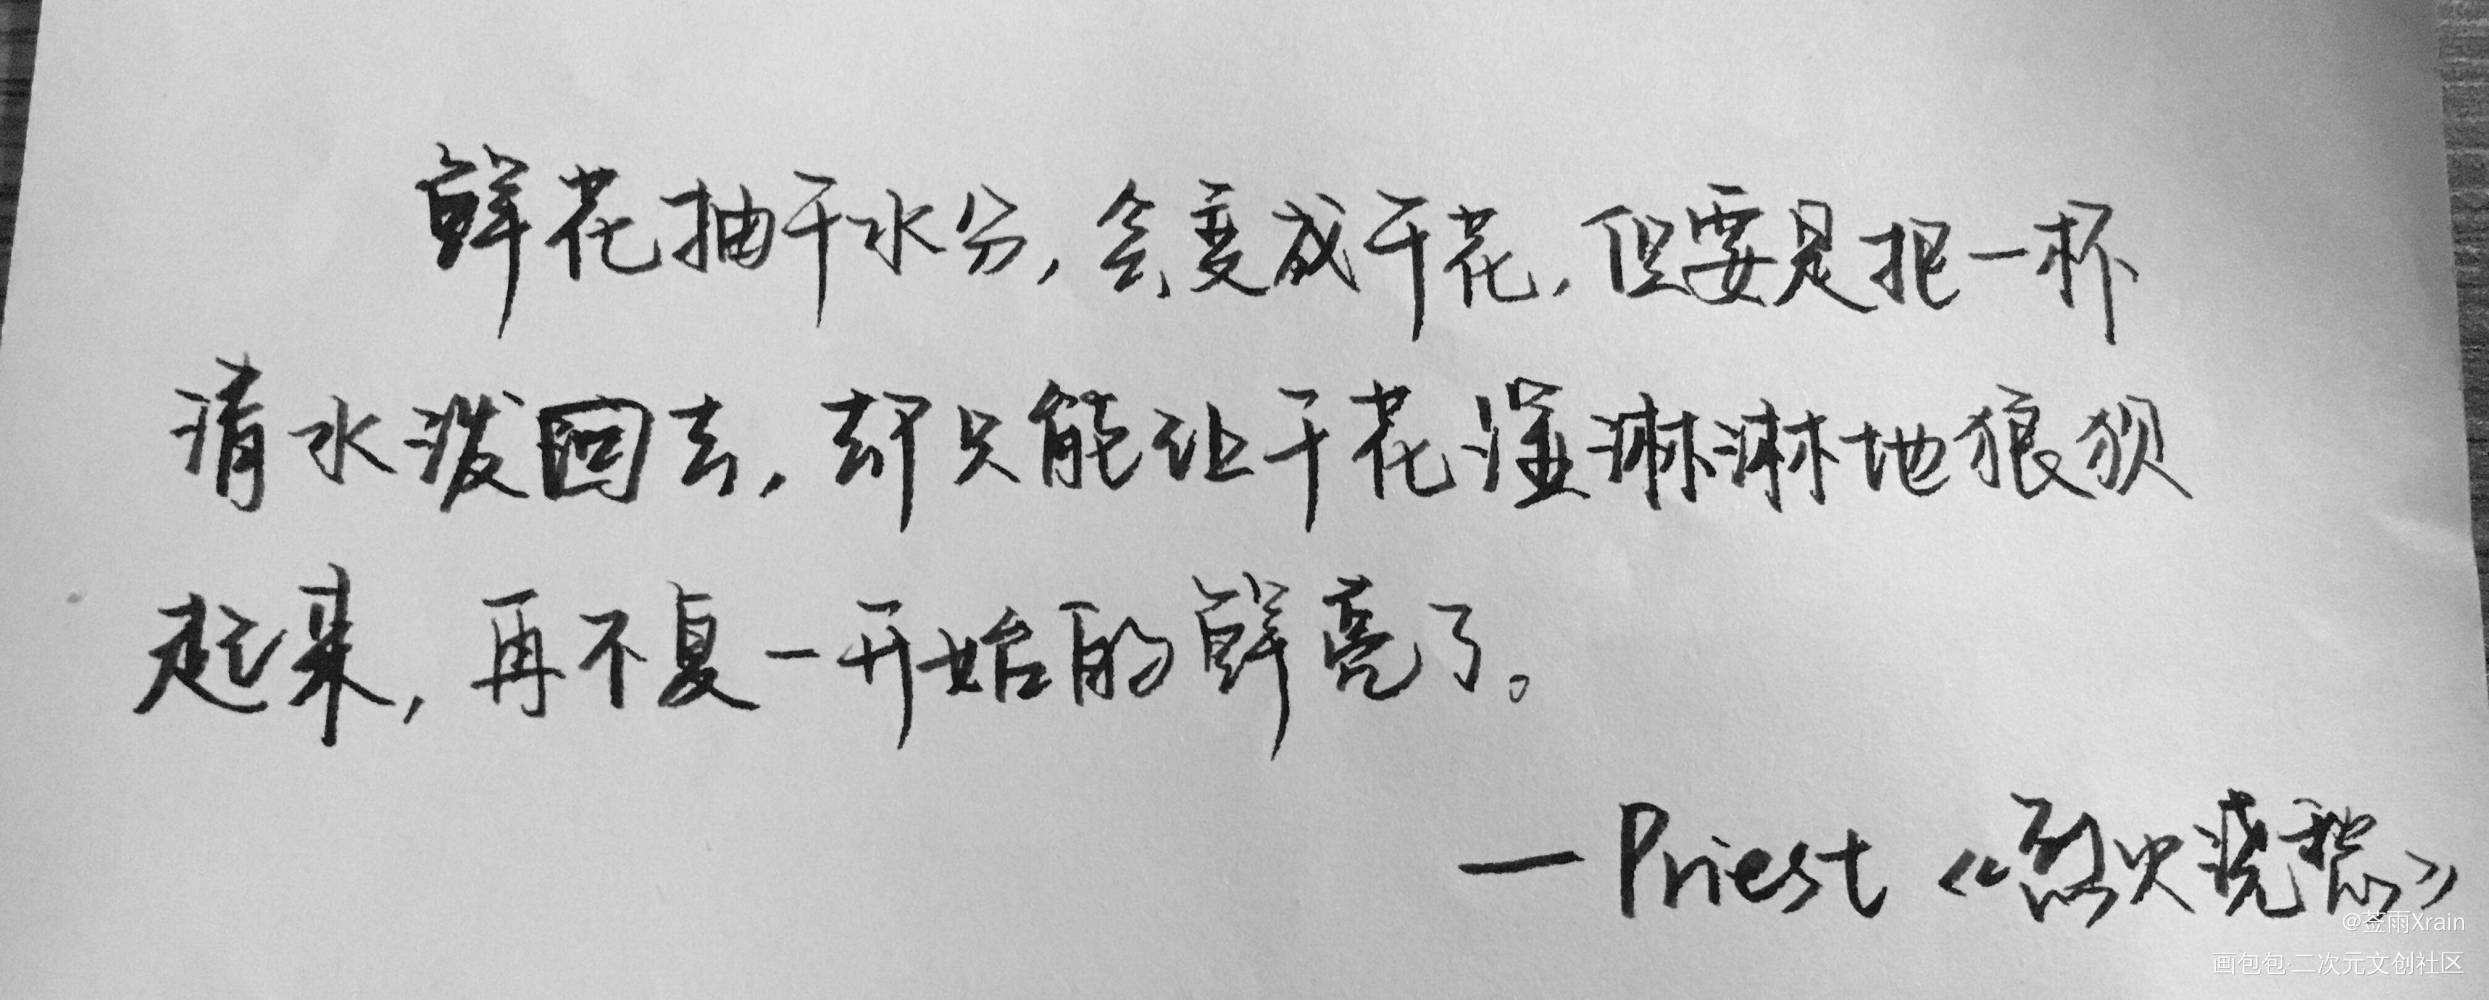 鲜花抽干水分，会变成干花，但要是把一杯
清水泼回去，却只能让干花湿淋淋地狼狈
起来，再不复一开始的鲜亮了。
—Priest《烈火浇愁》
@莶雨Xrain
画包包·二次元文创社区